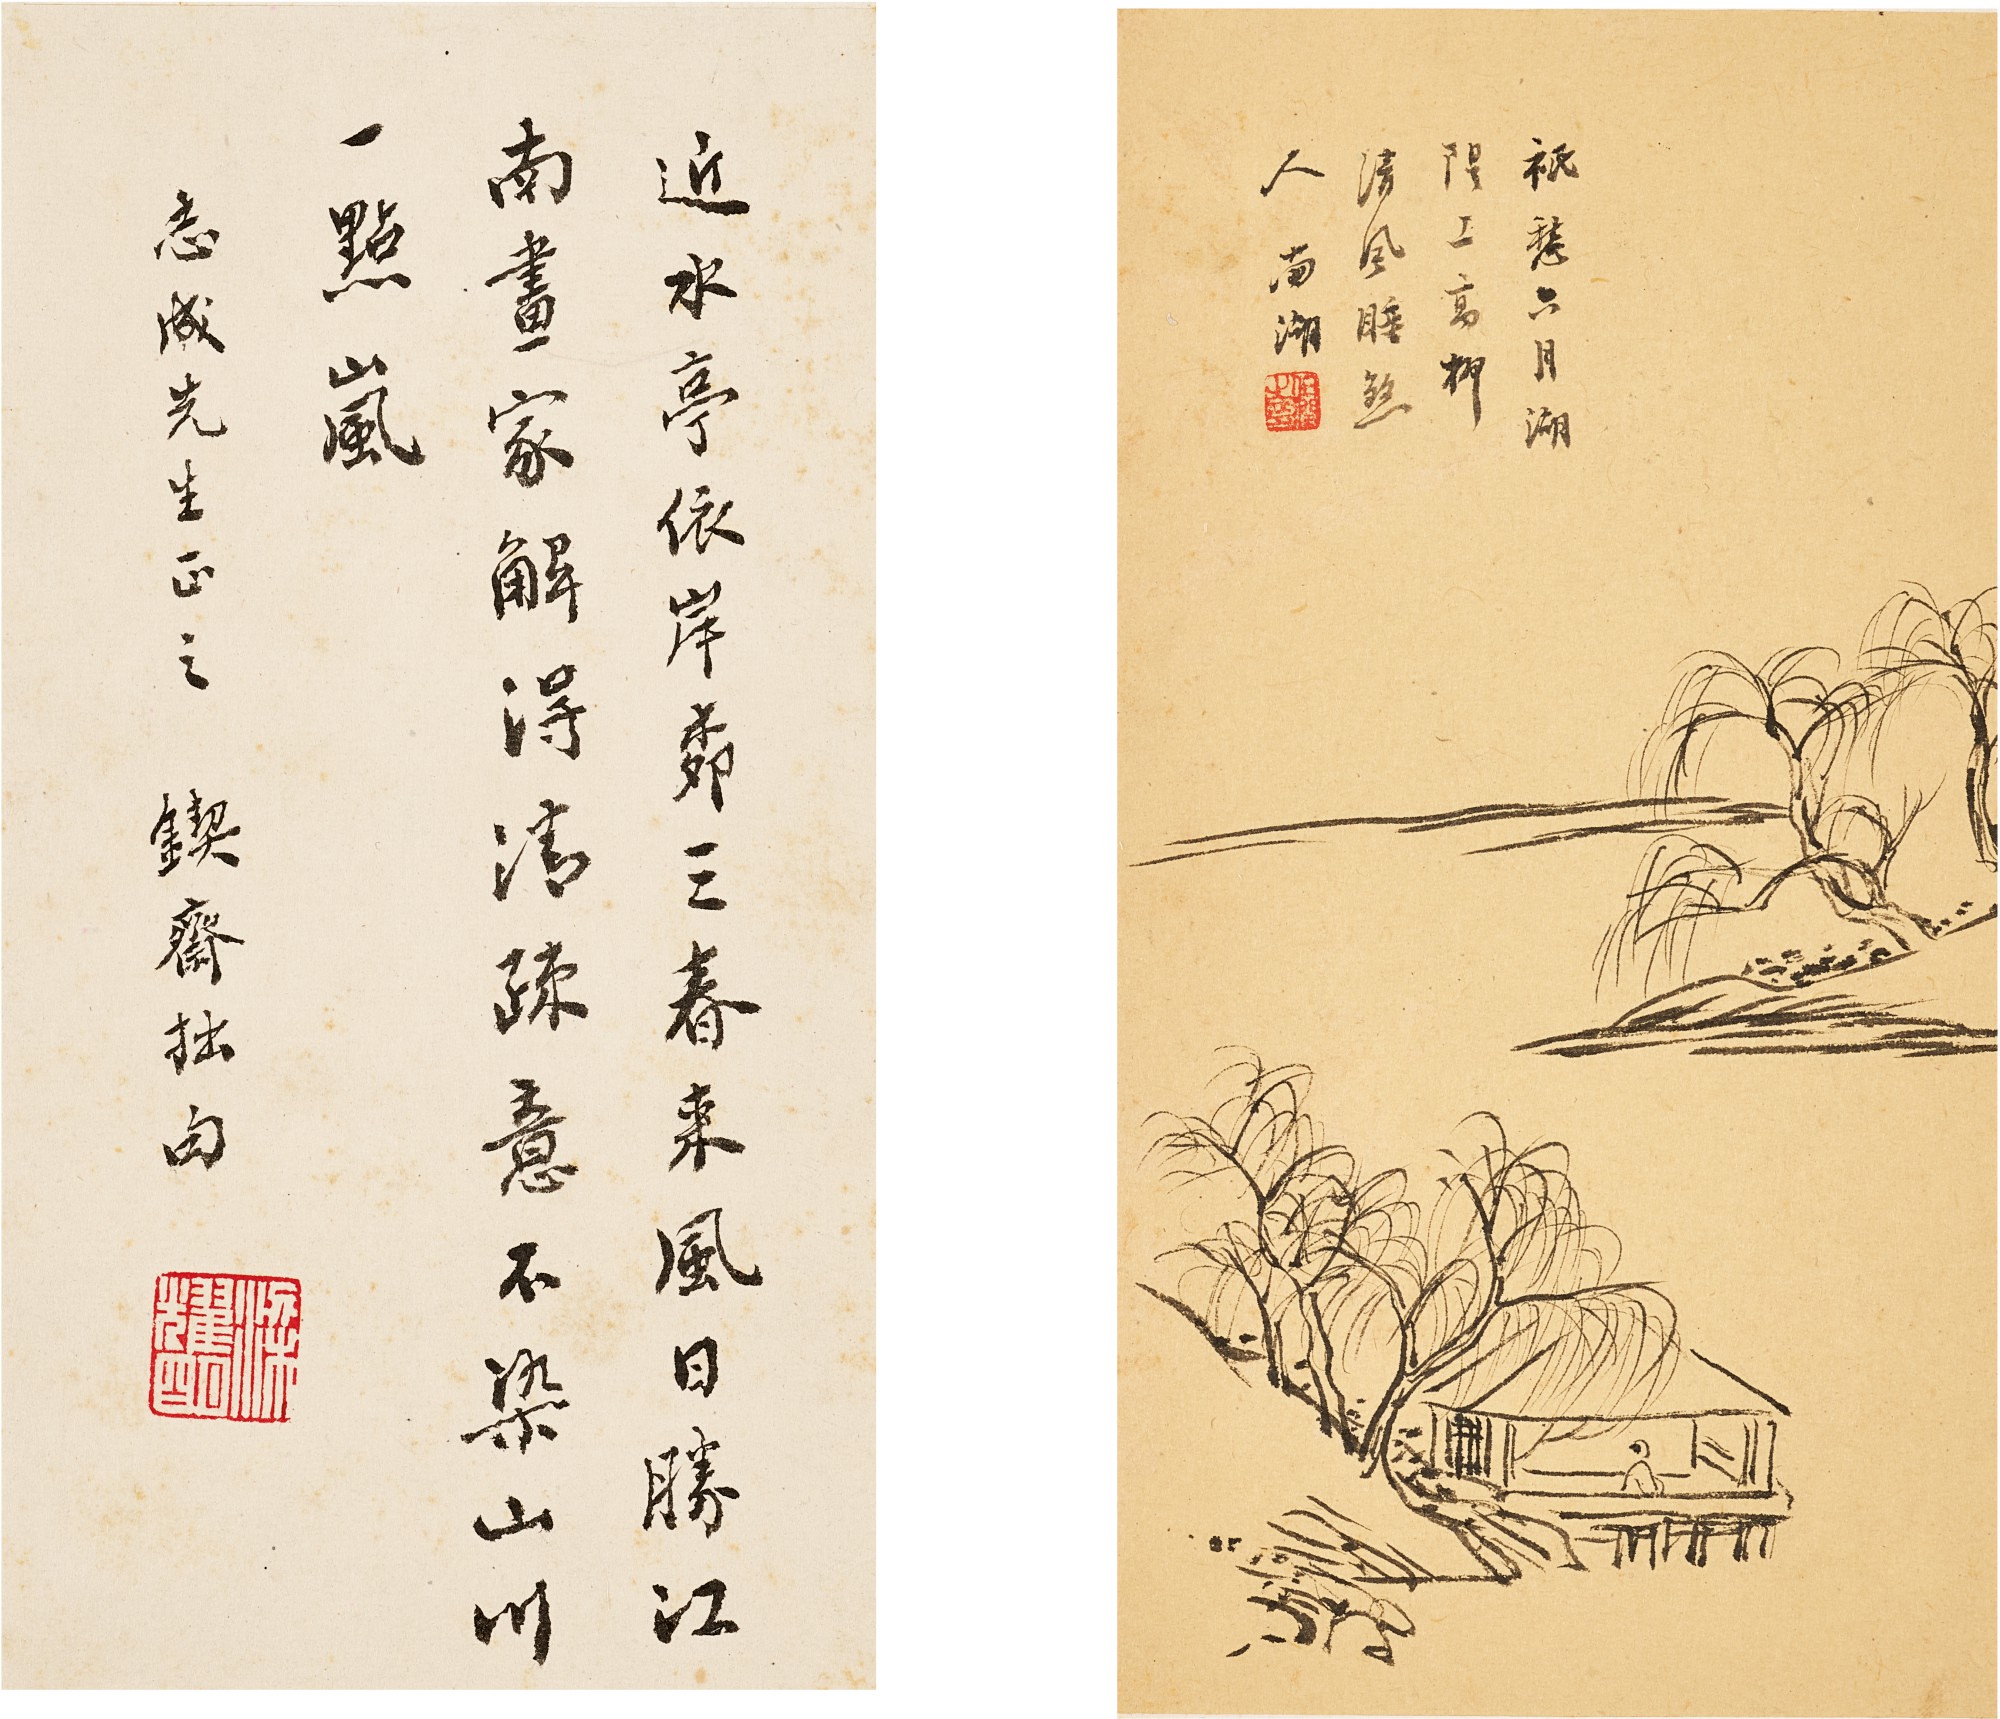 祗愁六月湖
隄上高柳
清風睡煞
人 南湖
近水亭依岸柳三春來風日勝江
南畫家解得清疎意不染山川
一點嵐
志成先生正之 鍥齋拙句